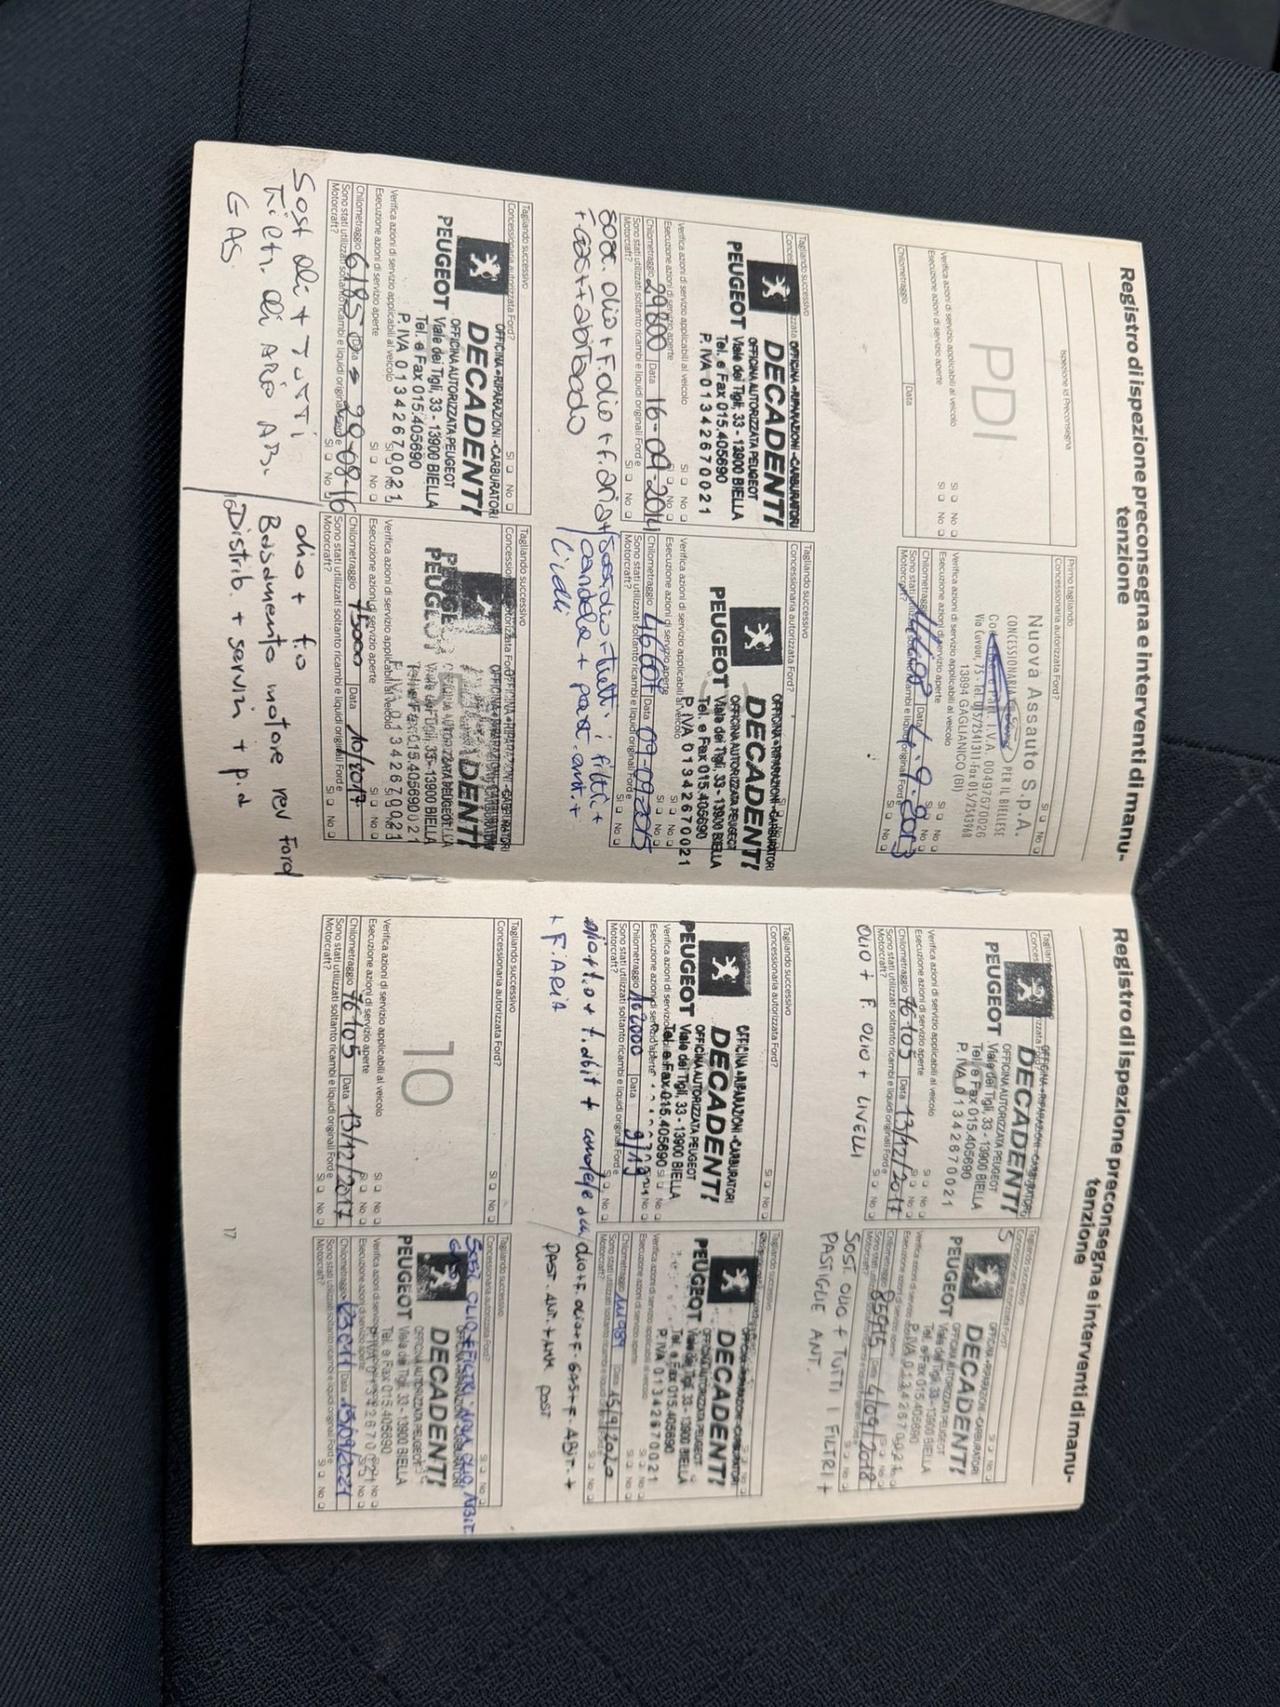 Registro di ispezione preconsegna e interventi di manu-
tenzione
Ispezione id Preconsegna
PDI
Verifica azioni di servizio applicabili al veicolo Sì No
Esecuzione azioni di servizio aperte Sì No
Chilometraggio Data
Primo tagliando
Concessionaria autorizzata Ford? Sì No
Nuova Assauto S.p.A.
CONCESSIONARIA PER IL BIELLESE
I.V.A. 00497670026
Via Cavour, 75 - Tel. 015/2541311 - Fax 015/2543968
13894 GAGLIANICO (BI)
Verifica azioni di servizio applicabili al veicolo Sì No
Esecuzione azioni di servizio aperte Sì No
Chilometraggio Data 4.9.2013
Sono stati utilizzati soltanto ricambi e liquidi originali Ford e
Motorcraft? Sì No
Tagliando successivo
OFFICINA - RIPARAZIONI - CARBURATORI
DECADENTI
OFFICINA AUTORIZZATA PEUGEOT
PEUGEOT Viale dei Tigli, 33 - 13900 BIELLA
Tel. e Fax 015.405690
P. IVA 01342670021
Verifica azioni di servizio applicabili al veicolo Sì No
Esecuzione azioni di servizio aperte Sì No
Chilometraggio 29800 Data 16-09-2014
Sono stati utilizzati soltanto ricambi e liquidi originali Ford e
Motorcraft? Sì No
Sost. olio + F.olio + f. aria +
+ gas + abitacolo
Tagliando successivo
Concessionaria autorizzata Ford?
OFFICINA - RIPARAZIONI - CARBURATORI
DECADENTI
OFFICINA AUTORIZZATA PEUGEOT
PEUGEOT Viale dei Tigli, 33 - 13900 BIELLA
Tel. e Fax 015.405690
P. IVA 01342670021
Verifica azioni di servizio applicabili al veicolo
Esecuzione azioni di servizio aperte Sì No
Chilometraggio 46607 Data 09-09-2015
Sono stati utilizzati soltanto ricambi e liquidi originali Ford e
Motorcraft? Sì No
tutti i filtri +
candele + past. ant. +
Tagliando successivo
Concessionaria autorizzata Ford? Sì No
OFFICINA - RIPARAZIONI - CARBURATORI
DECADENTI
OFFICINA AUTORIZZATA PEUGEOT
PEUGEOT Viale dei Tigli, 33 - 13900 BIELLA
Tel. e Fax 015.405690
P. IVA 01342670021
Verifica azioni di servizio applicabili al veicolo Sì No
Esecuzione azioni di servizio aperte Sì No
Chilometraggio 61850 Data 29-08-16
Sono stati utilizzati soltanto ricambi e liquidi originali Ford e
Motorcraft? Sì No
Sost oli + TUTTI
Filtri di ARIA ABi.
GAS
Tagliando successivo
Concessionaria autorizzata Ford?
OFFICINA - RIPARAZIONI - CARBURATORI
DECADENTI
PEUGEOT Viale dei Tigli, 33 - 13900 BIELLA
Tel. e Fax 015.405690
P. IVA 01342670021
Verifica azioni di servizio applicabili al veicolo
Esecuzione azioni di servizio aperte Sì No
Chilometraggio 75000 Data 10/2017
Sono stati utilizzati soltanto ricambi e liquidi originali Ford e
Motorcraft? Sì No
olio + f.o
Basamento motore rev Ford
Distrib. + servizi + p.a
16
Registro di ispezione preconsegna e interventi di manu-
tenzione
Tagliando successivo
OFFICINA - RIPARAZIONI - CARBURATORI
DECADENTI
OFFICINA AUTORIZZATA PEUGEOT
PEUGEOT Viale dei Tigli, 33 - 13900 BIELLA
Tel. e Fax 015.405690
P. IVA 01342670021
Verifica azioni di servizio applicabili al veicolo
Esecuzione azioni di servizio aperte Sì No
Chilometraggio 76105 Data 13/12/2017
Sono stati utilizzati soltanto ricambi e liquidi originali Ford e
Motorcraft? Sì No
OLIO + F. OLIO + LIVELLI
Tagliando successivo
Concessionaria autorizzata Ford? Sì No
OFFICINA - RIPARAZIONI - CARBURATORI
DECADENTI
OFFICINA AUTORIZZATA PEUGEOT
PEUGEOT Viale dei Tigli, 33 - 13900 BIELLA
Tel. e Fax 015.405690
P. IVA 01342670021
Verifica azioni di servizio applicabili al veicolo
Esecuzione azioni di servizio aperte Sì No
Chilometraggio Data 4/09/2018
Motorcraft? Sì No
SOST. OLIO + TUTTI I FILTRI +
PASTIGLIE ANT.
Tagliando successivo
Concessionaria autorizzata Ford? Sì No
OFFICINA - RIPARAZIONI - CARBURATORI
DECADENTI
OFFICINA AUTORIZZATA PEUGEOT
PEUGEOT Viale dei Tigli, 33 - 13900 BIELLA
Tel. e Fax 015.405690
Verifica azioni di servizio
Esecuzione azioni di servizio aperte
Chilometraggio 102000 Data 9/19
Sono stati utilizzati soltanto ricambi e liquidi originali Ford e
Motorcraft? Sì No
olio + f.o + f. abit + candele
+ F. ARIA
Tagliando successivo
OFFICINA - RIPARAZIONI - CARBURATORI
DECADENTI
PEUGEOT Viale dei Tigli, 33 - 13900 BIELLA
Tel. e Fax 015.405690
P. IVA 01342670021
Verifica azioni di servizio applicabili al veicolo
Esecuzione azioni di servizio aperte Sì No
Chilometraggio Data 15/9/2020
Sono stati utilizzati soltanto ricambi e liquidi originali Ford e
Motorcraft? Sì No
olio + F. olio + F. GAS + F. ABIT. +
PAST. ANT. + POST
Tagliando successivo
Concessionaria autorizzata Ford? Sì No
10
Verifica azioni di servizio applicabili al veicolo Sì No
Esecuzione azioni di servizio aperte Sì No
Chilometraggio 76105 Data 13/12/2017
Sono stati utilizzati soltanto ricambi e liquidi originali Ford e
Motorcraft? Sì No
Tagliando successivo
Concessionaria autorizzata Ford?
SOST. OLIO + FILTRI ARIA, OLIO, ABIT.
DECADENTI
OFFICINA AUTORIZZATA PEUGEOT
PEUGEOT Viale dei Tigli, 33 - 13900 BIELLA
Tel. e Fax 015.405690
Verifica azioni di servizio applicabili al veicolo
Esecuzione azioni di servizio aperte Sì No
Chilometraggio Data 13/09/2021
Sono stati utilizzati soltanto ricambi e liquidi originali Ford e
Motorcraft? Sì No
17